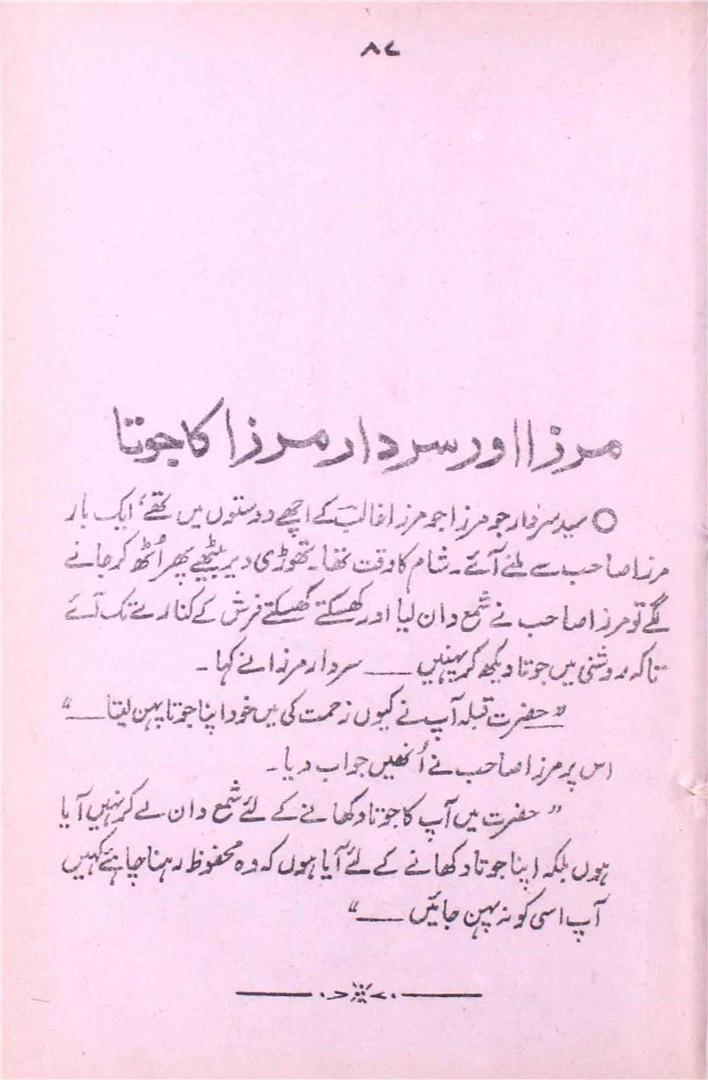 ۸۷
مرزا اور سردار مرزا کا جوتا
○ سید سردار جو مرزا جو مرزا غالبؔ کے اچھے دوستوں میں تھے، ایک بار
مرزا صاحب سے ملنے آئے۔ شام کا وقت تھا۔ تھوڑی دیر بیٹھے پھر اُٹھ کر جانے
لگے تو مرزا صاحب نے شمع دان لیا اور کھسکتے کھسکتے فرش کے کنارے تک آئے
تاکہ روشنی میں جوتا دیکھ کر پہنیں ــــ سردار مرزا نے کہا۔
"حضرت قبلہ آپ نے کیوں زحمت کی میں خود اپنا جوتا پہن لیتا ــــ"
اس پر مرزا صاحب نے اُنھیں جواب دیا۔
"حضرت میں آپ کا جوتا دکھانے کے لئے شمع دان لے کر نہیں آیا
ہوں بلکہ اپنا جوتا دکھانے کے لئے آیا ہوں کہ وہ محفوظ رہنا چاہئے کہیں
آپ اسی کو نہ پہن جائیں ــــ"